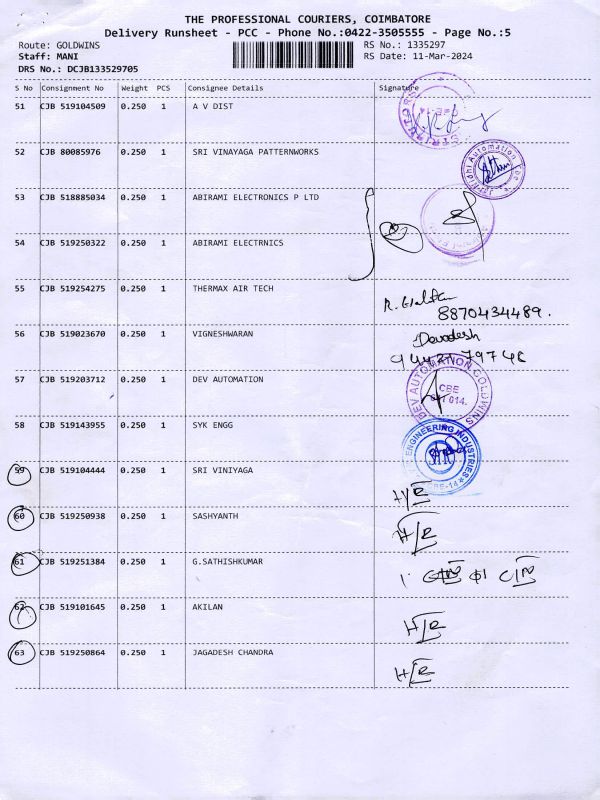 THE PROFESSIONAL COURIERS, COIMBATORE
Delivery Runsheet - PCC - Phone No.:0422-3505555 - Page No.:5
Route: GOLDWINS RS No.: 1335297
Staff: MANI RS Date: 11-Mar-2024
DRS No.: DCJB133529705
S No Consignment No Weight PCS Consignee Details Signature
51 CJB 519104509 0.250 1 A V DIST
52 CJB 80085976 0.250 1 SRI VINAYAGA PATTERNWORKS
53 CJB 518885034 0.250 1 ABIRAMI ELECTRONICS P LTD
54 CJB 519250322 0.250 1 ABIRAMI ELECTRNICS
55 CJB 519254275 0.250 1 THERMAX AIR TECH
8870434489.
56 CJB 519023670 0.250 1 VIGNESHWARAN
Devadesh
57 CJB 519203712 0.250 1 DEV AUTOMATION
DEV AUTOMATION GOLDWINS
CBE
58 CJB 519143955 0.250 1 SYK ENGG
ENGINEERING INDUSTRIES
CBE-14
59 CJB 519104444 0.250 1 SRI VINIYAGA
H/R
60 CJB 519250938 0.250 1 SASHYANTH
H/R
61 CJB 519251384 0.250 1 G.SATHISHKUMAR
62 CJB 519101645 0.250 1 AKILAN
H/R
63 CJB 519250864 0.250 1 JAGADESH CHANDRA
H/R